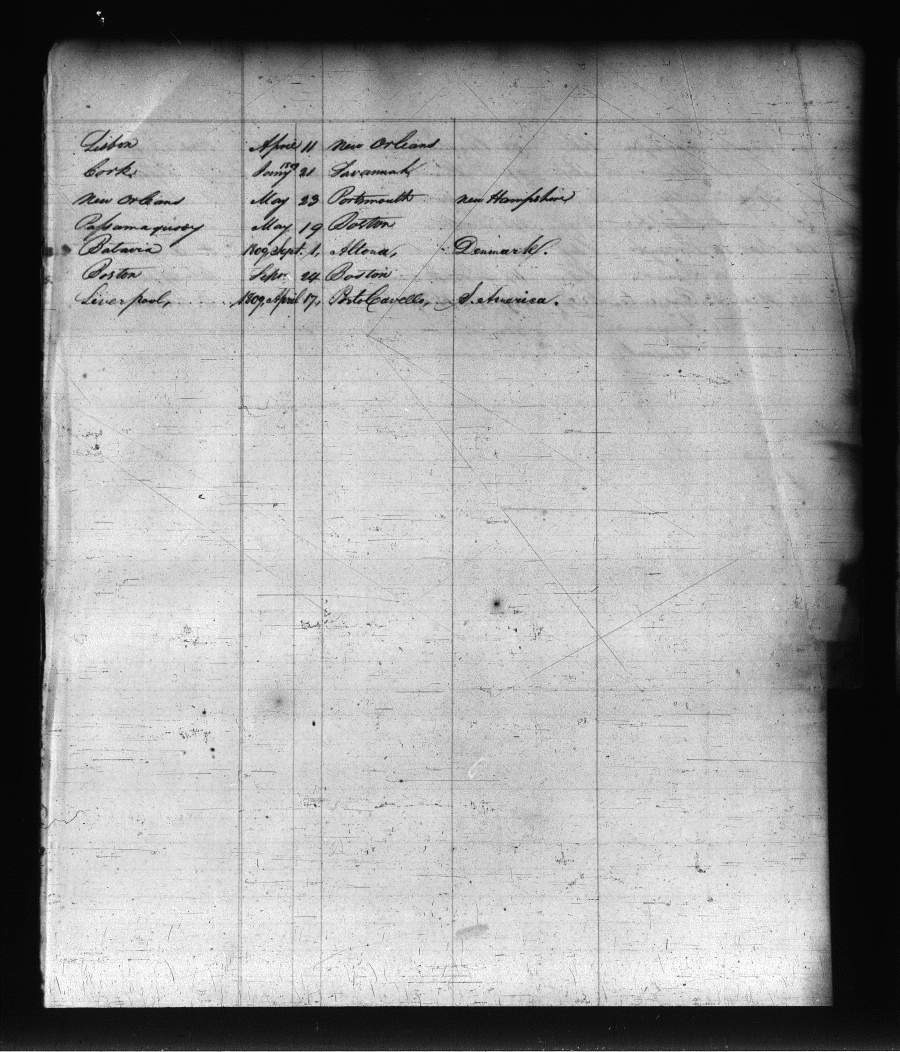 Lisbon April 11 New Orleans
Cork Jany 1809 21 Savannah
New Orleans May 23 Portsmouth New Hampshire
Passamaquoy May 19 Boston
Batavia 1809 Sept. 1, Altona, Denmark.
Boston 24 Boston
Liverpool, 1809, April 17, Porto Cavello, S. America.